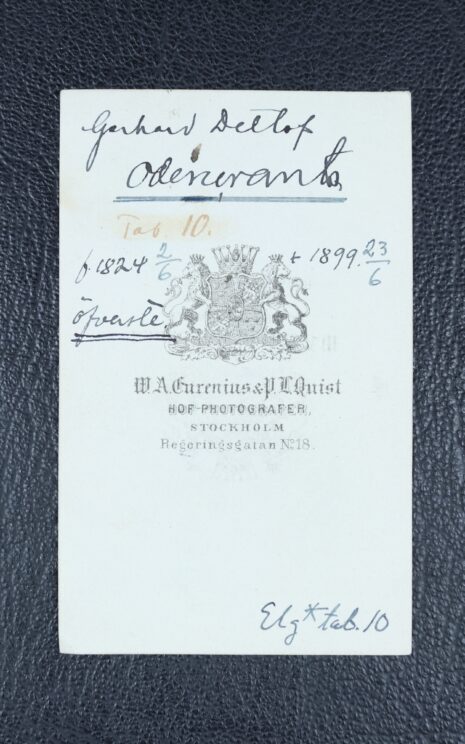 Gerhard Detlof
Odencrants
Tab 10.
f. 1824 2/6 + 1899. 23/6
öfverste
W. A. Eurenius & P. L. Quist
HOF-PHOTOGRAFER,
STOCKHOLM
Regeringsgatan No 18.
Elg* tab. 10